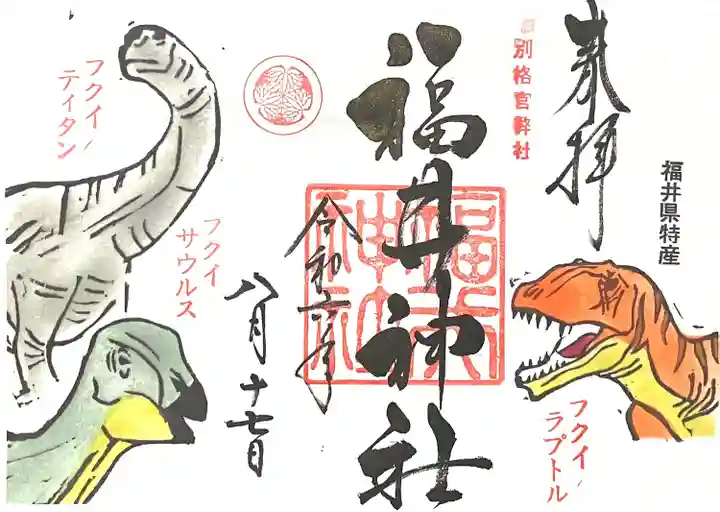 奉拝
福井県特産
別格官幣社
福井神社
福井神社
令和六年
八月十七日
フクイ
ラプトル
フクイ
ティタン
フクイ
サウルス